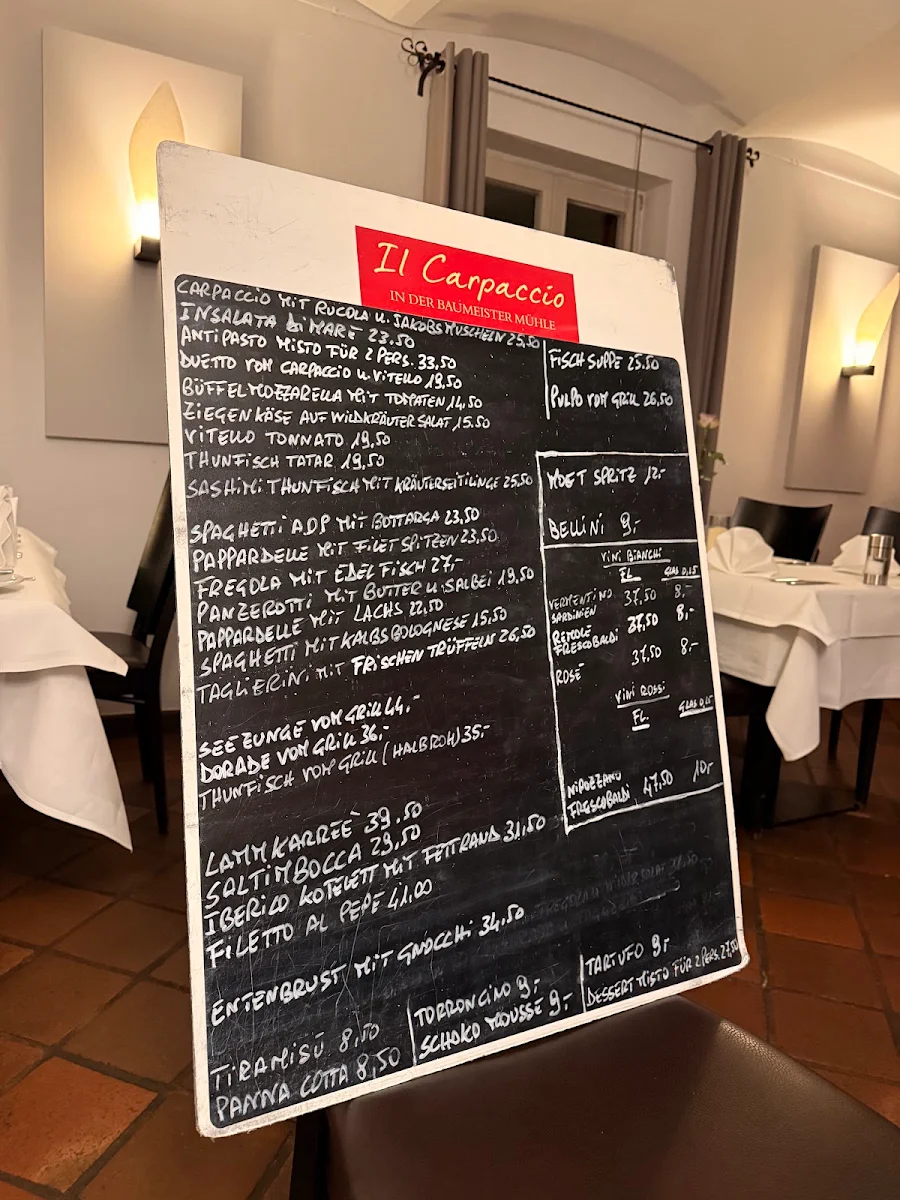 Il Carpaccio
IN DER BAUMEISTER MÜHLE
CARPACCIO MIT RUCOLA U. JAKOBSMUSCHELN 25,50
INSALATA DI MARE 23.50
ANTIPASTO MISTO FÜR 2 PERS. 33,50
DUETTO VOM CARPACCIO U. VITELLO 19,50
BÜFFELMOZZARELLA MIT TOMATEN 14,50
ZIEGENKÖSE AUF WILDKRÄUTER SALAT 15.50
VITELLO TONNATO 19,50
THUNFISCH TATAR 19,50
SASHIMI THUNFISCH MIT KRÄUTERSEITLINGE 25.50
SPAGHETTI ADP MIT BOTTARGA 23,50
PAPPARDELLE MIT FILET SPITZEN 23,50
FREGOLA MIT EDELFISCH 27,-
PANZEROTTI MIT BUTTER U. SALBEI 19,50
PAPPARDELLE MIT LACHS 22,50
SPAGHETTI MIT KALBSBOLOGNESE 15,50
TAGLIERINI MIT FRISCHEN TRÜFFELN 26,50
SEEZUNGE VOM GRILL 44,-
DORADE VOM GRILL 36,-
THUNFISCH VOM GRILL (HALBROH) 35,-
LAMMKARREÈ 39.50
SALTIMBOCCA 29,50
IBERICO KOTELETT MIT FETTRAND 31,50
FILETTO AL PEPE 41,00
ENTENBRUST MIT GNOCCHI 34,50
TIRAMISÙ 8,50
PANNA COTTA 8,50
TORRONCINO 9,-
SCHOKO MOUSSE 9,-
TARTUFO 9,-
DESSERT MISTO FÜR 2 PERS. 27,50
FISCH SUPPE 25.50
PULPO VOM GRILL 26,50
MOET SPRITZ 12,-
BELLINI 9,-
VINI BIANCHI
FL. GLAS 0,15
VERMENTINO 37,50 8,-
SARDINIEN
REMOLE 37,50 8,-
FRESCOBALDI
ROSÉ 37.50 8,-
VINI ROSSI
FL. GLAS 0,15
NIPOZZANO 47,50 10,-
FRESCOBALDI